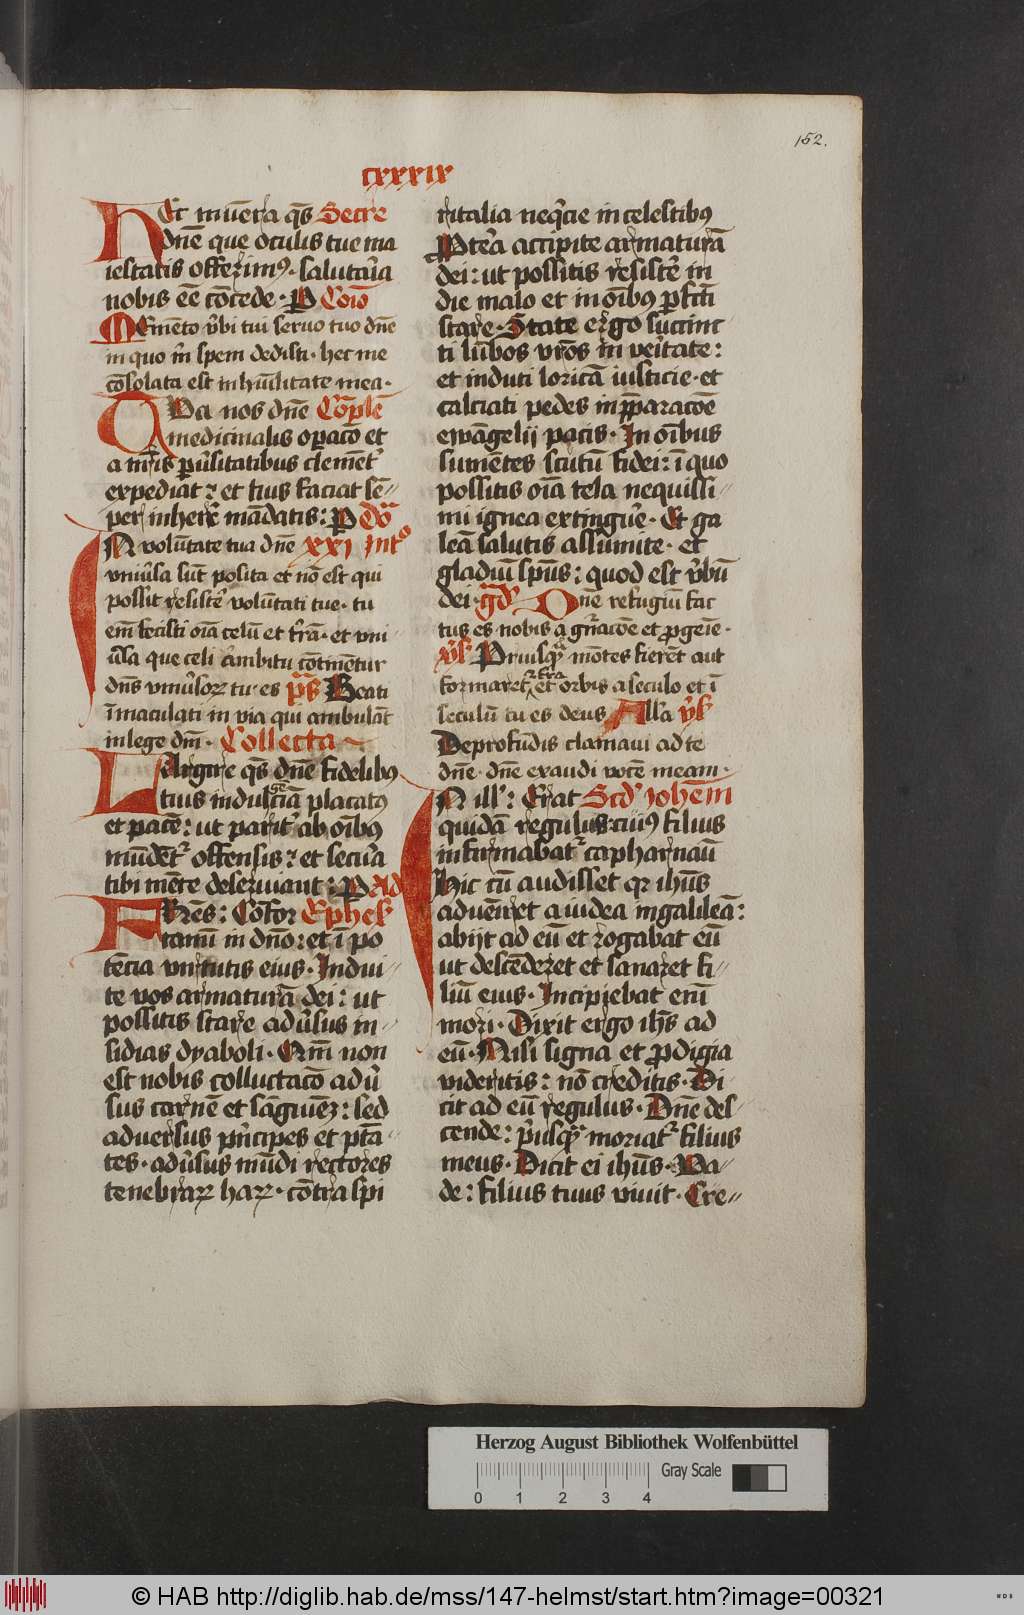 152.
cxxxix
HEc mūera q̄s Secre
dn̄e que oculis tue ma
iestatis offerim⁹. salutar̄ia
nobis eē cōcede. P Cōio
MEmēto v̄bi tui seruo tuo dn̄e
in quo m̄ spem dedisti. hec me
cōsolata est in hūilitate mea.
QVa nos dn̄e Cōplē
medicinalis oꝑacō et
a nr̄is ꝑu̓sitatibus clemēt᷑
expediat ⁊ et tuis faciat sē-
per inherē mādatis: P Dō
IN volūtate tua dn̄e xxi Intᵒ
vniu̓sa sūt posita et nō est qui
possit resistē volūtati tue. tu
em̄ fecisti oīa celū et t̄rā. et vni
u̓sa que celi ambitu cōtinētur
dn̄s vniu̓soꝝ tu es p̄s Beati
īmaculati in via qui ambulāt
in lege dn̄i. Collecta
LArgire q̄s dn̄e fidelibus
tuis indulgēciā placatus
et pacē: ut parit᷑ ab oībus
mūdēt᷑ offensis ⁊ et secura
tibi mēte deseruiant: P Ad
FRēs: Cōfor Ephes
tamī in dn̄o: et ī po
tēcia virtutis eius. Indui-
te vos armaturā dei: ut
possitis stare adu̓sus in-
sidias dyaboli. Qm̄ non
est nobis colluctacō adu̓
sus carnē et sāguinē: sed
adversus p̄ncipes et ptā-
tes. adu̓sus mūdi rectores
tenebraꝝ haꝝ. cōtra spi
ritalia neq̄cie in celestibus
Ptēa accipite armaturā
dei: ut possitis resistē in
die malo et in oībus ꝑfcī
stare. State ergo succinc
ti lūbos vr̄os in veritate:
et induti loricā iusticie. et
calciati pedes in p̄paracōe
ewāgelij pacis. In oībus
sumētes scutū fidei: ī quo
possitis oīa tela nequissi-
mi ignea extinguē. Et ga
leā salutis assumite. et
gladiū sp̄us: quod est v̄bū
dei. gd̄ Dn̄e refugiū fac
tus es nobis a gn̄racōe et ꝓgeīe.
v̄s Priusq̄ꝫ mōtes fierēt aut
formaret᷑ t̄ra et orbis a seculo et ī
seculū tu es deus All'a v̄s
De profūdis clamaui ad te
dn̄e. dn̄e exaudi vocē meam.
IN ill': Erat Scd' Johēm
quidā regulus: cui⁹ filius
infirmabat᷑ capharnaū
Hic cū audisset qr ihūs
advēiret a iudea in galileā:
abijt ad eū et rogabat eū
ut descēderet et sanaret fi-
liū eius. Incipiebat em̄
mori. Dixit ergo ih̄s ad
eū. Nisi signa et ꝓdigia
videritis: nō creditis. Di
cit ad eū regulus. Dn̄e des-
cende: p̄usq̄ꝫ moriat᷑ filius
meus. Dicit ei ihūs. Va-
de: filius tuus viuit. Cre-
Herzog August Bibliothek Wolfenbüttel
Gray Scale
0 1 2 3 4
© HAB http://diglib.hab.de/mss/147-helmst/start.htm?image=00321